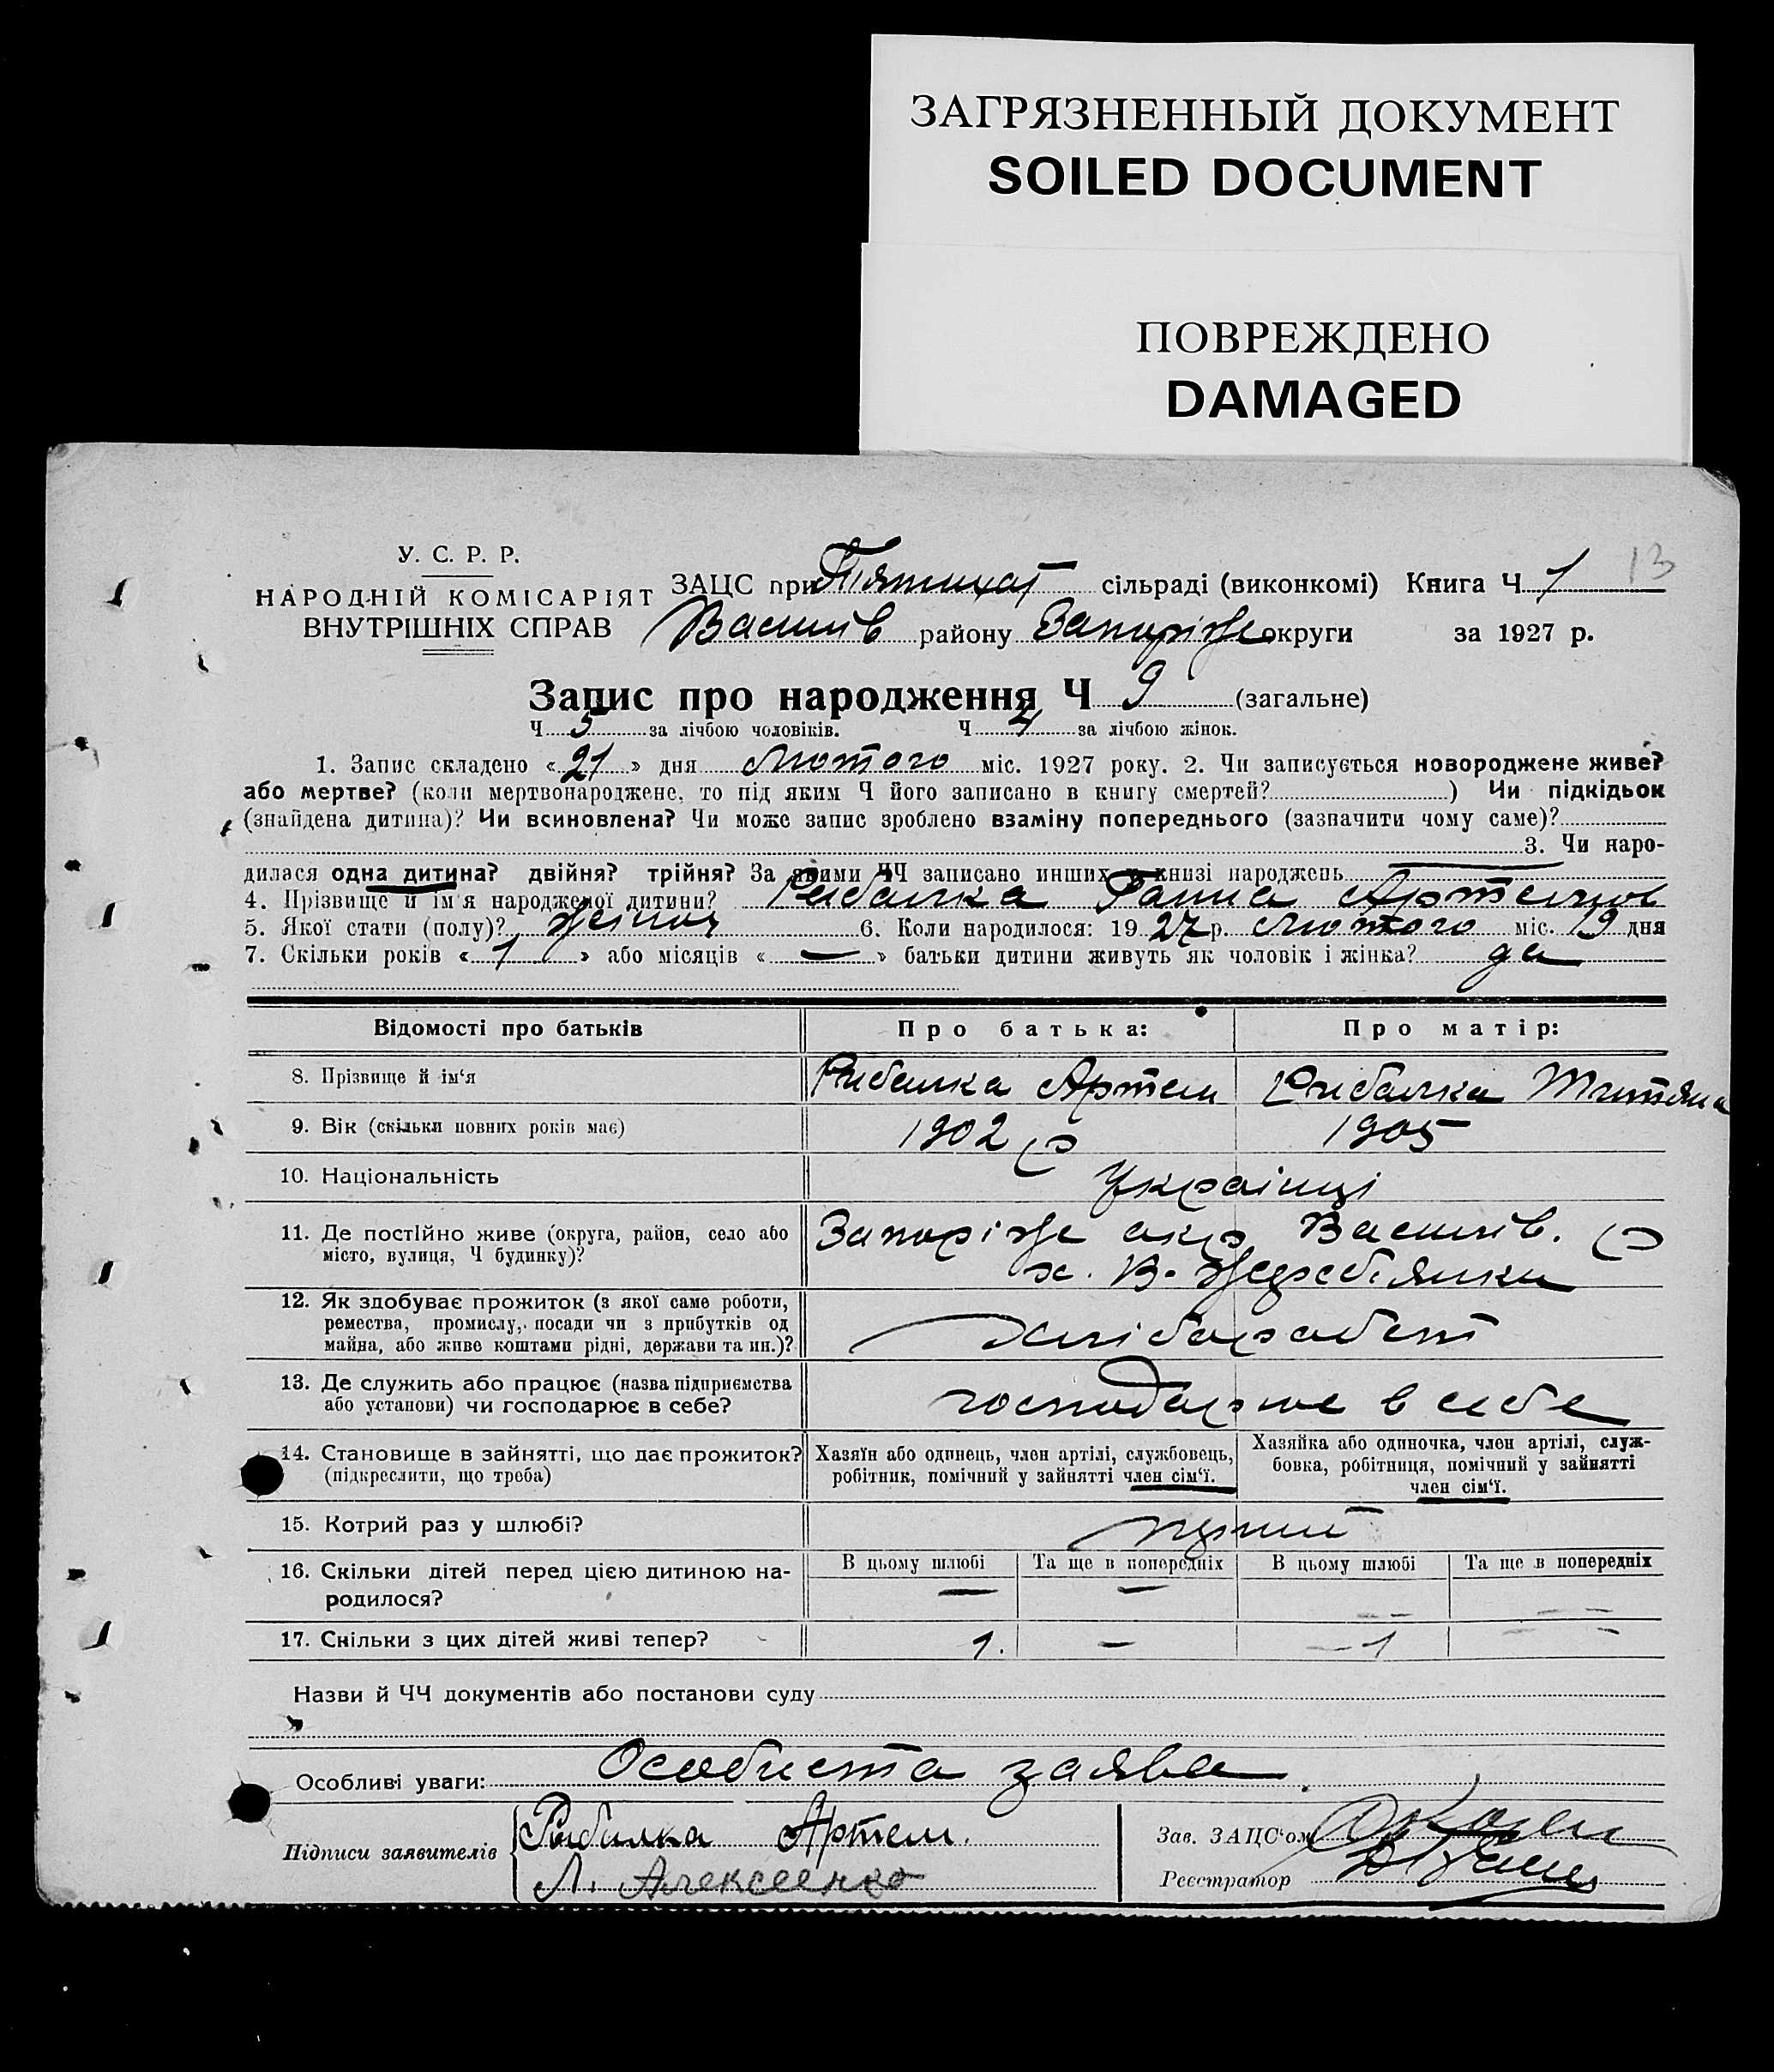 ЗАГРЯЗНЕННЫЙ ДОКУМЕНТ
SOILED DOCUMENT
ПОВРЕЖДЕНО
DAMAGED
13
У. С. Р. Р.
НАРОДНІЙ КОМІСАРІЯТ
ВНУТРІШНІХ СПРАВ
ЗАЦС при Пятихат сільраді (виконкомі) Книга Ч 1
Василів району Запоріж округи за 1927 р.
Запис про народження Ч 9 (загальне)
Ч 5 за лічбою чоловіків. Ч 4 за лічбою жінок.
1. Запис складено « 21 » дня Лютого міс. 1927 року. 2. Чи записується новороджене живе?
або мертве? (коли мертвонароджене, то під яким Ч його записано в книгу смертей? ) Чи підкідьок
(знайдена дитина)? Чи всиновлена? Чи може запис зроблено взаміну попереднього (зазначити чому саме)?
3. Чи наро-
дилася одна дитина? двійня? трійня? За якими ЧЧ записано инших у книзі народжень
4. Прізвище й ім'я народженої дитини? Рибалка Ганна Артемов
5. Якої стати (полу)? 6. Коли народилося: 19 27 р. Лютого міс. 19 дня
7. Скільки років « 1 » або місяців « — » батьки дитини живуть як чоловік і жінка? да
Відомості про батьків Про батька: Про матір:
8. Прізвище й ім'я Рибалка Артем Рибалка Титяна
9. Вік (скільки повних років має) 1902 р 1905
10. Національність Українці
11. Де постійно живе (округа, район, село або Запоріж окр Василів. р
місто, вулиця, Ч будинку)? х. В-Жеребцянки
12. Як здобуває прожиток (з якої саме роботи,
ремества, промислу, посади чи з прибутків од хлібороб
майна, або живе коштами рідні, держави та ин.)?
13. Де служить або працює (назва підприємства
або установи) чи господарює в себе? господарює в себе
14. Становище в зайнятті, що дає прожиток? Хазяїн або одинець, член артілі, службовець, Хазяйка або одиночка, член артілі, служ-
(підкреслити, що треба) робітник, помічний у зайнятті член сім'ї. бовка, робітниця, помічний у зайнятті
член сім'ї.
15. Котрий раз у шлюбі? перший
16. Скільки дітей перед цією дитиною на- В цьому шлюбі Та ще в попередніх В цьому шлюбі Та ще в попередніх
родилося? — — — — — —
17. Скільки з цих дітей живі тепер? 1. — — 1 — —
Назви й ЧЧ документів або постанови суду
Особливі уваги: Особиста заява.
Підписи заявителів Рибалка Артем. Зав. ЗАЦС'ом
Л. Алексеенко Реєстратор